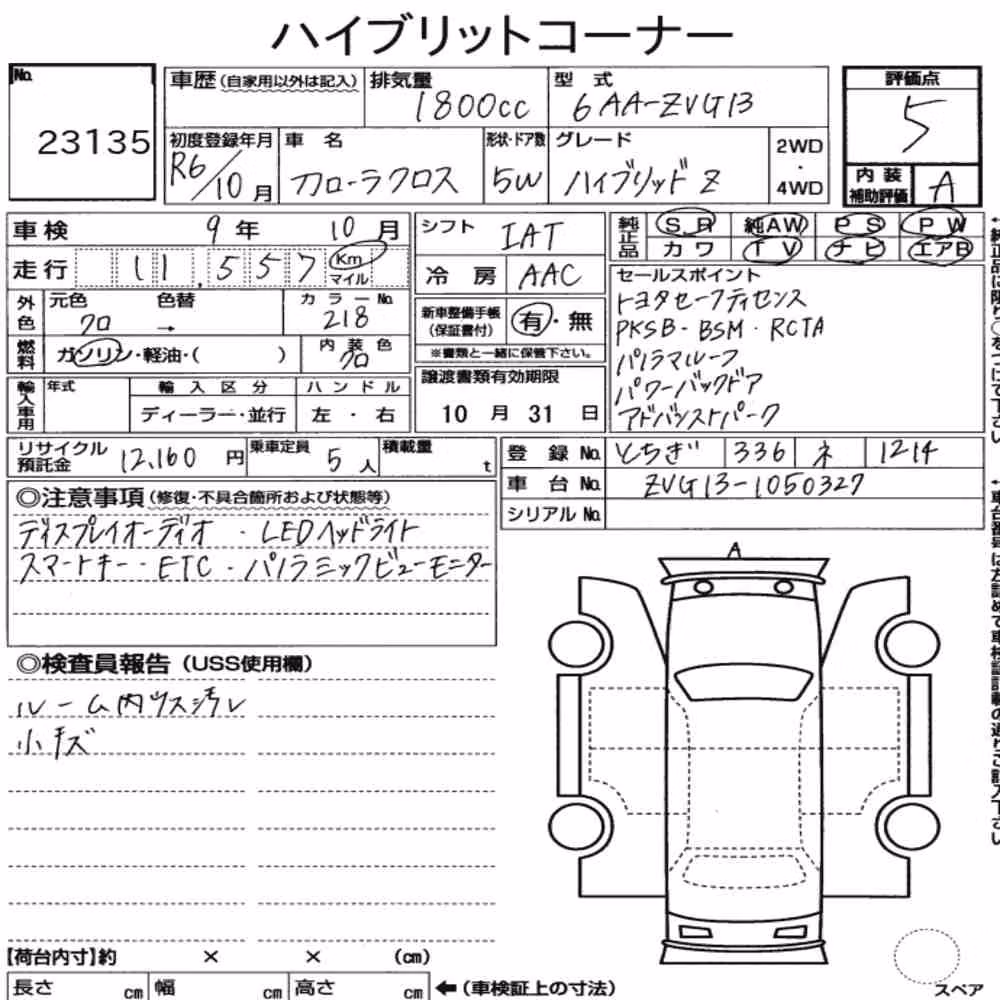 ハイブリットコーナー
No.
23135
車歴(自家用以外は記入)
排気量
1800cc
型式
6AA-ZVG13
評価点
5
初度登録年月
R6/10月
車名
カローラクロス
形状・ドア数
5W
グレード
ハイブリッドZ
2WD
・
4WD
内装
補助評価
A
車検 9年 10月
走行 11,557 Km
マイル
シフト IAT
冷房 AAC
純正品
S R 純AW P S P W
カワ T V ナビ エアB
外色
元色 クロ
色替 →
カラーNo. 218
燃料
ガソリン・軽油・( )
内装色
クロ
新車整備手帳
(保証書付)
有・無
※書類と一緒に保管下さい。
セールスポイント
トヨタセーフティセンス
PKSB・BSM・RCTA
パノラマルーフ
パワーバックドア
アドバンストパーク
輸入車用
年式
輸入区分
ディーラー・並行
ハンドル
左・右
譲渡書類有効期限
10月31日
リサイクル
預託金 12,160円
乗車定員 5人
積載量 t
登録No. とちぎ 336 ネ 1214
車台No. ZVG13-1050327
シリアルNo.
◎注意事項(修復・不具合箇所および状態等)
ディスプレイオーディオ ・LEDヘッドライト
スマートキー・ETC・パノラミックビューモニター
◎検査員報告(USS使用欄)
ルーム内ウス汚レ
小キズ
A
【荷台内寸】約 × × (cm)
長さ cm 幅 cm 高さ cm ←(車検証上の寸法)
スペア